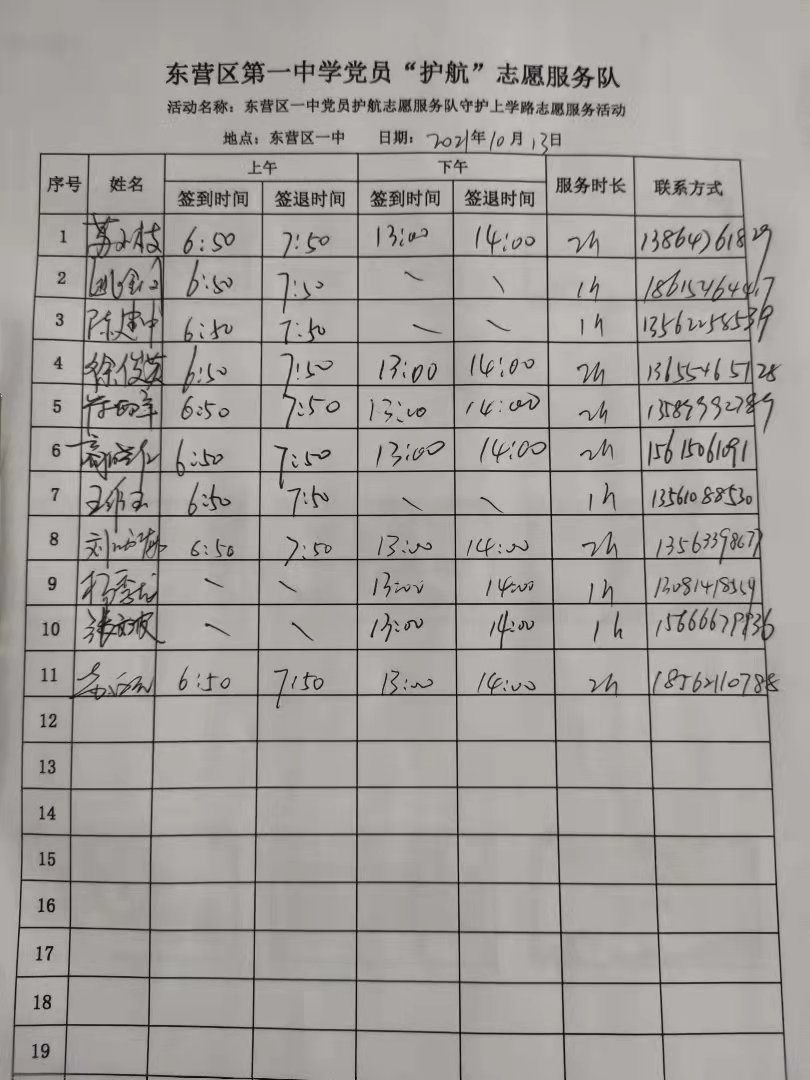 东营区第一中学党员“护航”志愿服务队
活动名称：东营区一中党员护航志愿服务队守护上学路志愿服务活动
地点：东营区一中 日期：2021年10月13日
序号 姓名 上午 下午 服务时长 联系方式
签到时间 签退时间 签到时间 签退时间
1 6:50 7:50 13:00 14:00 2h 13864761829
2 6:50 7:50 \ \ 1h 18615464447
3 陈建中 6:50 7:50 \ \ 1h 13562258539
4 徐俊英 6:50 7:50 13:00 14:00 2h 13655465128
5 6:50 7:50 13:00 14:00 2h 13589992789
6 6:50 7:50 13:00 14:00 2h 15615061091
7 6:50 7:50 \ \ 1h 13561088530
8 6:50 7:50 13:00 14:00 2h
9 \ \ 13:00 14:00 1h
10 \ \ 13:00 14:00 1h 15666679936
11 6:50 7:50 13:00 14:00 2h 18562110788
12
13
14
15
16
17
18
19